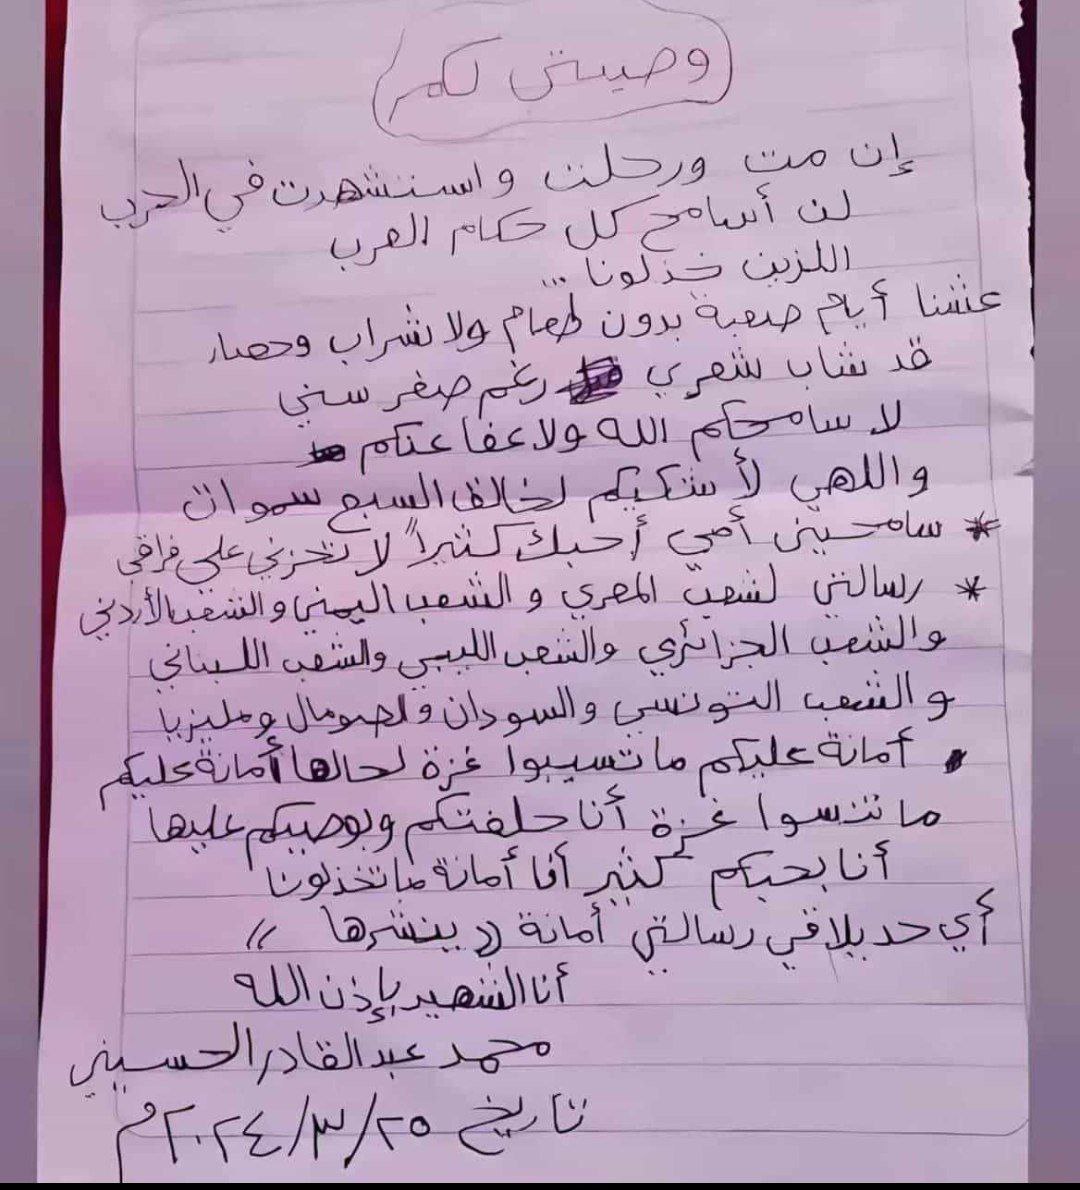 وصيتي لكم
إن مت ورحلت واستشهدت في الحرب
لن أسامح كل حكام العرب
اللزين خذلونا ...
عشنا أيام صعبة بدون طعام ولا شراب وحصار
قد شاب شعري رغم صغر سني
لا سامحكم الله ولا عفا عنكم
واللهي لأشكيكم لخالق السبع سموات
* سامحيني أمي أحبك كثيراً لا تحزني على فراقي
* رسالتي لشعب المصري والشعب اليمني والشعب الأردني
والشعب الجزائري والشعب الليبي والشعب اللبناني
والشعب التونسي والسودان ولصومال ومليزيا
أمانة عليكم ما تسيبوا غزة لحالها أمانة عليكم
ما تنسوا غزة أنا حلفتكم وبوصيكم عليها
أنا بحبكم كثير أنا أمانة ما تخذلونا
أي حد يلاقي رسالتي أمانة (( ينشرها ))
أنا الشهيد بإذن الله
محمد عبد القادر الحسيني
تاريخ ٢٥/٣/٢٠٢٤م